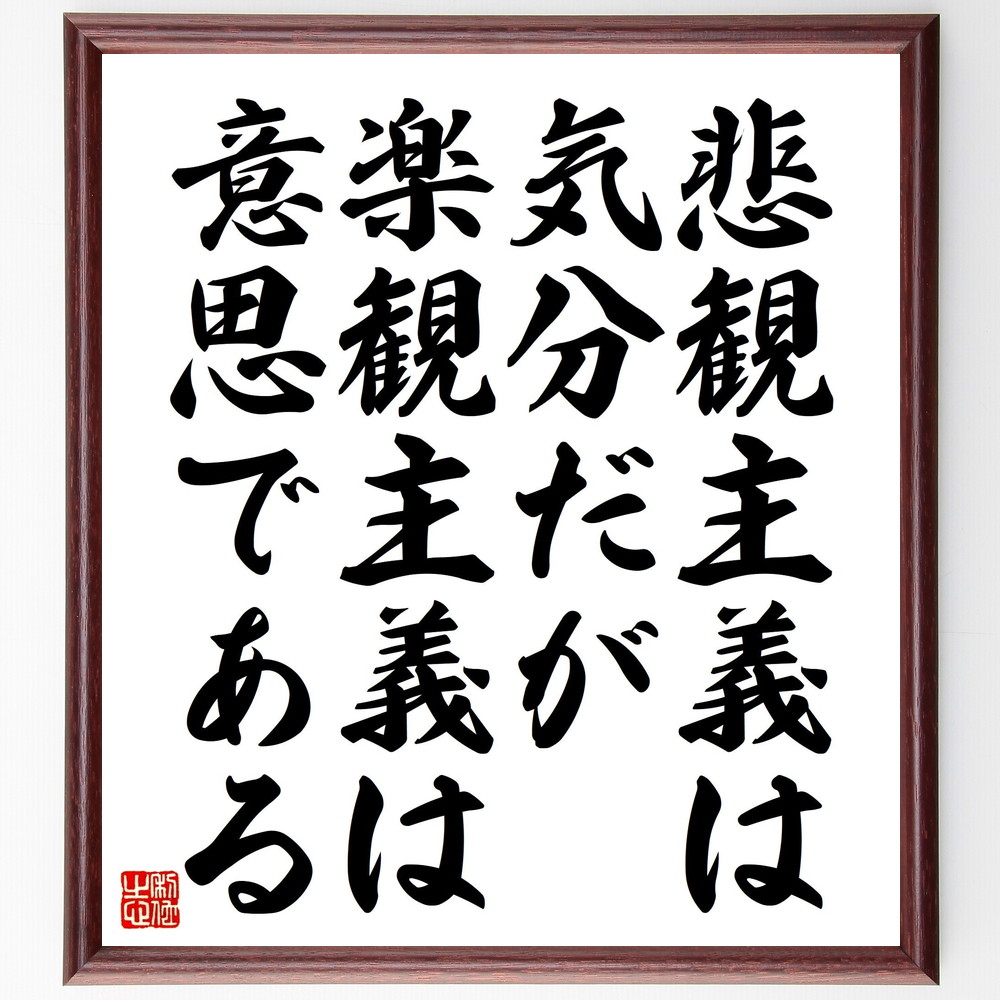 悲観主義は
気分だが
楽観主義は
意思である